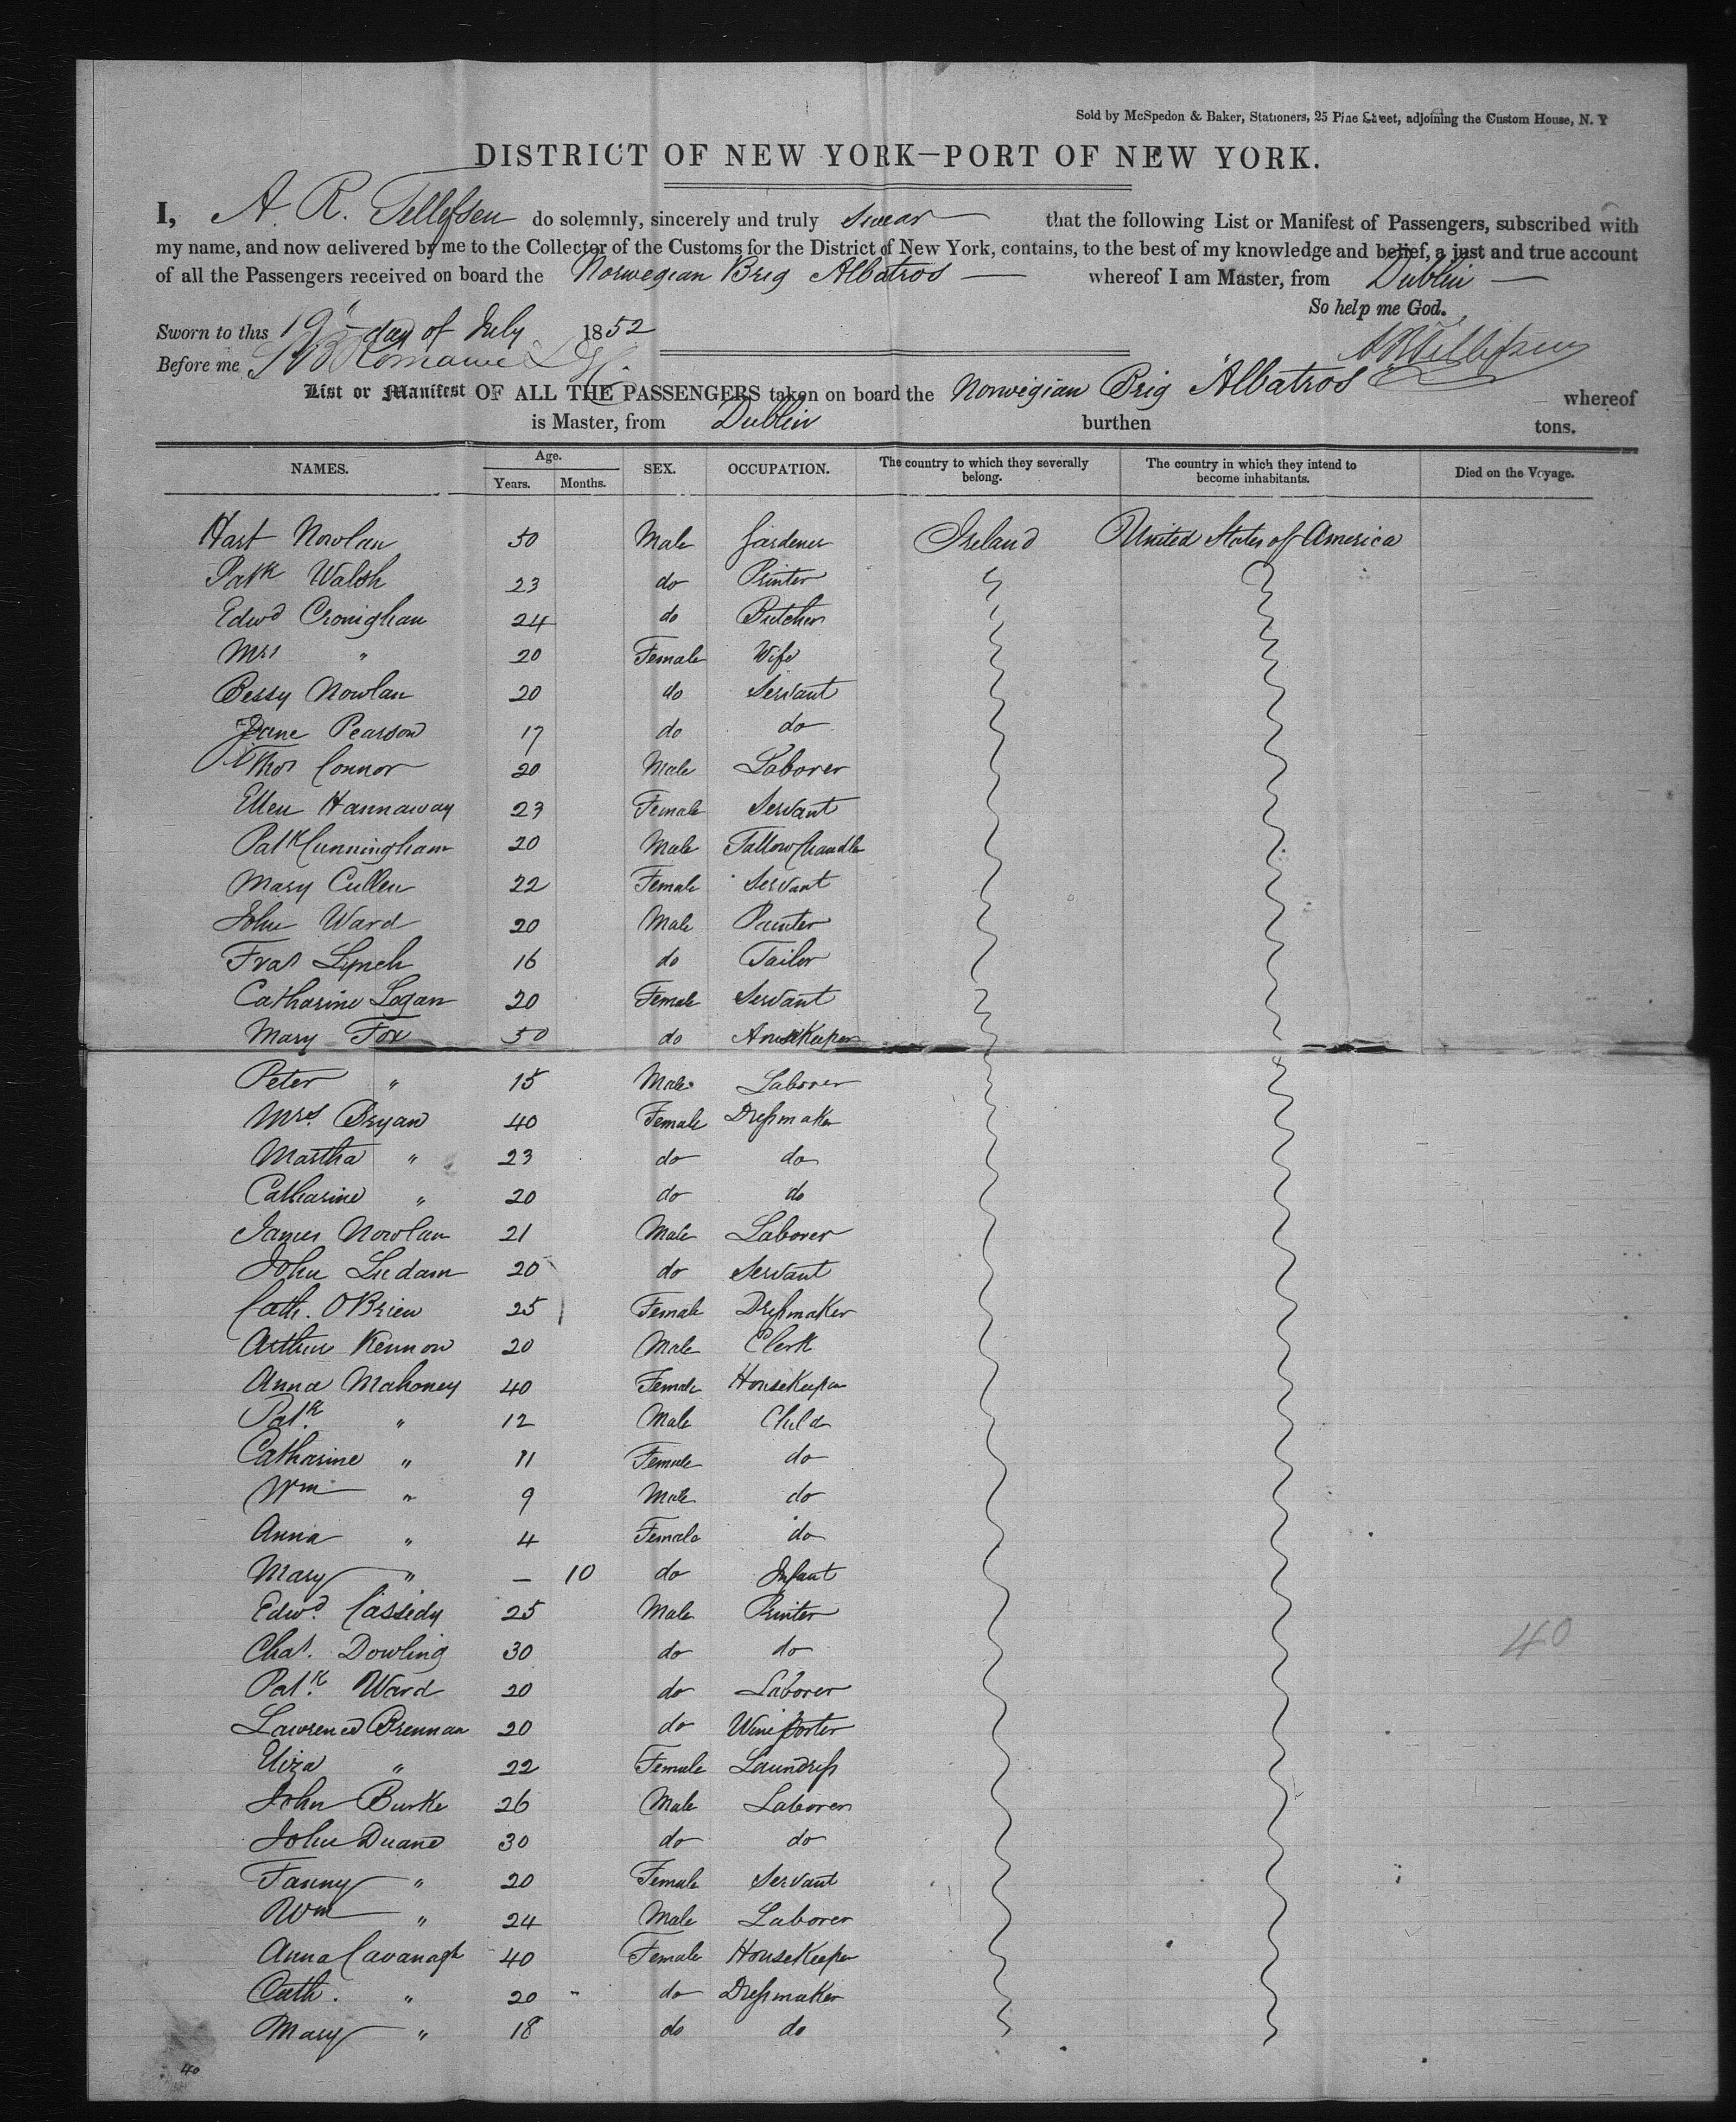 Sold by McSpedon & Baker, Stationers, 25 Pine Street, adjoining the Custom House, N. Y
DISTRICT OF NEW YORK—PORT OF NEW YORK.
I, A. R. Tellefsen do solemnly, sincerely and truly swear that the following List or Manifest of Passengers, subscribed with
my name, and now delivered by me to the Collector of the Customs for the District of New York, contains, to the best of my knowledge and belief, a just and true account
of all the Passengers received on board the Norwegian Brig Albatros — whereof I am Master, from Dublin —
So help me God.
Sworn to this 19 day of July 1852
Before me
List or Manifest OF ALL THE PASSENGERS taken on board the Norwegian Brig Albatros whereof
is Master, from Dublin burthen tons.
NAMES. Age. Years. Months. SEX. OCCUPATION. The country to which they severally belong. The country in which they intend to become inhabitants. Died on the Voyage.
Hart Nowlan 50 Male Gardener Ireland United States of America
Patk Walsh 23 do Printer
Edwd Cronighan 24 do Butcher
Mrs " 20 Female Wife
Bessy Nowlan 20 do Servant
Jane Pearson 17 do do
Thos Connor 20 Male Laborer
Ellen Hannaway 23 Female Servant
Patk Cunningham 20 Male Tallow Chandler
Mary Cullen 22 Female Servant
John Ward 20 Male Painter
Fras Lynch 16 do Tailor
Catharine Logan 20 Female Servant
Mary Fox 50 do HouseKeeper
Peter " 15 Male Laborer
Mrs. Bryan 40 Female Dressmaker
Martha " 23 do do
Catharine " 20 do do
James Nowlan 21 Male Laborer
John Ludam 20 do Servant
Cath. O'Brien 25 Female Dressmaker
Arthur Kennon 20 Male Clerk
Anna Mahoney 40 Female HouseKeeper
Patk. " 12 Male Child
Catharine " 11 Female do
Wm " 9 Male do
Anna " 4 Female do
Mary " — 10 do Infant
Edwd. Cassidy 25 Male Printer
Chas. Dowling 30 do do
Patk. Ward 20 do Laborer
Lawrence Brennan 20 do Wine Porter
Eliza " 22 Female Laundress
John Burke 26 Male Laborer
John Duane 30 do do
Fanny " 20 Female Servant
Wm " 24 Male Laborer
Anna Cavanagh 40 Female HouseKeeper
Cath. " 20 do Dressmaker
Mary " 18 do do
40
40